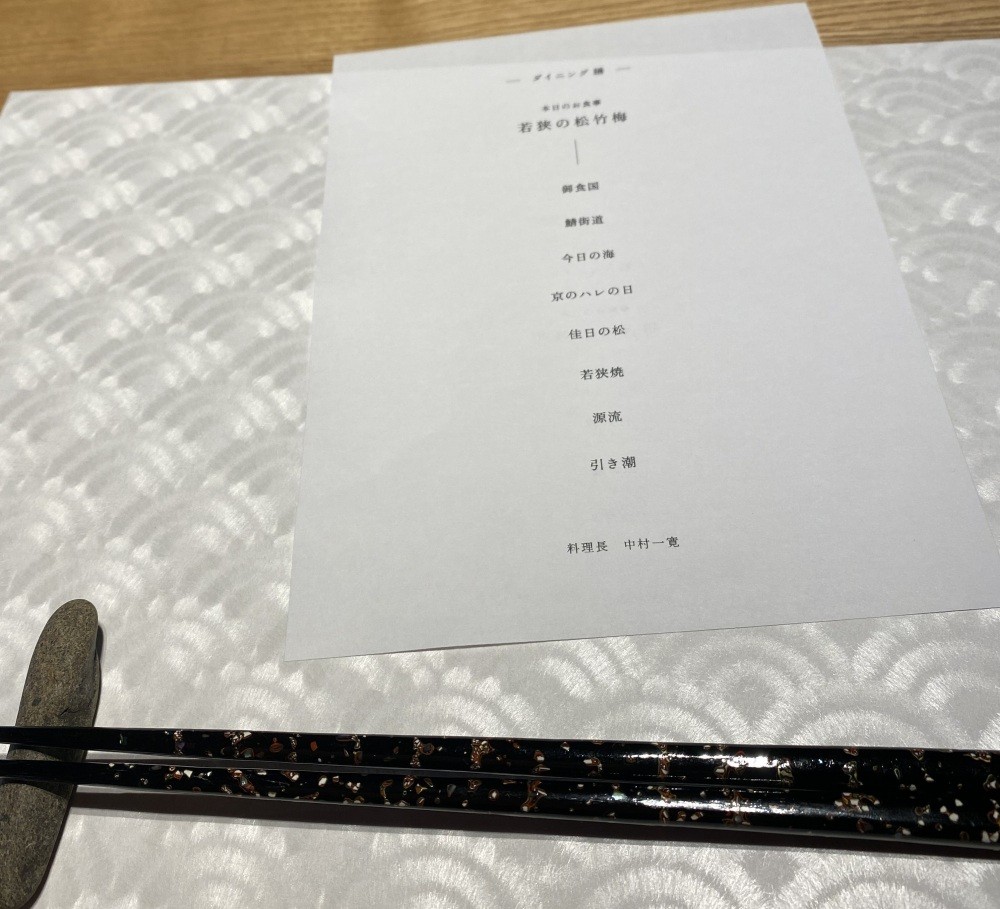 ダイニング 膳
本日のお食事
若狭の松竹梅
御食国
鯖街道
今日の海
京のハレの日
佳日の松
若狭焼
源流
引き潮
料理長 中村一寛